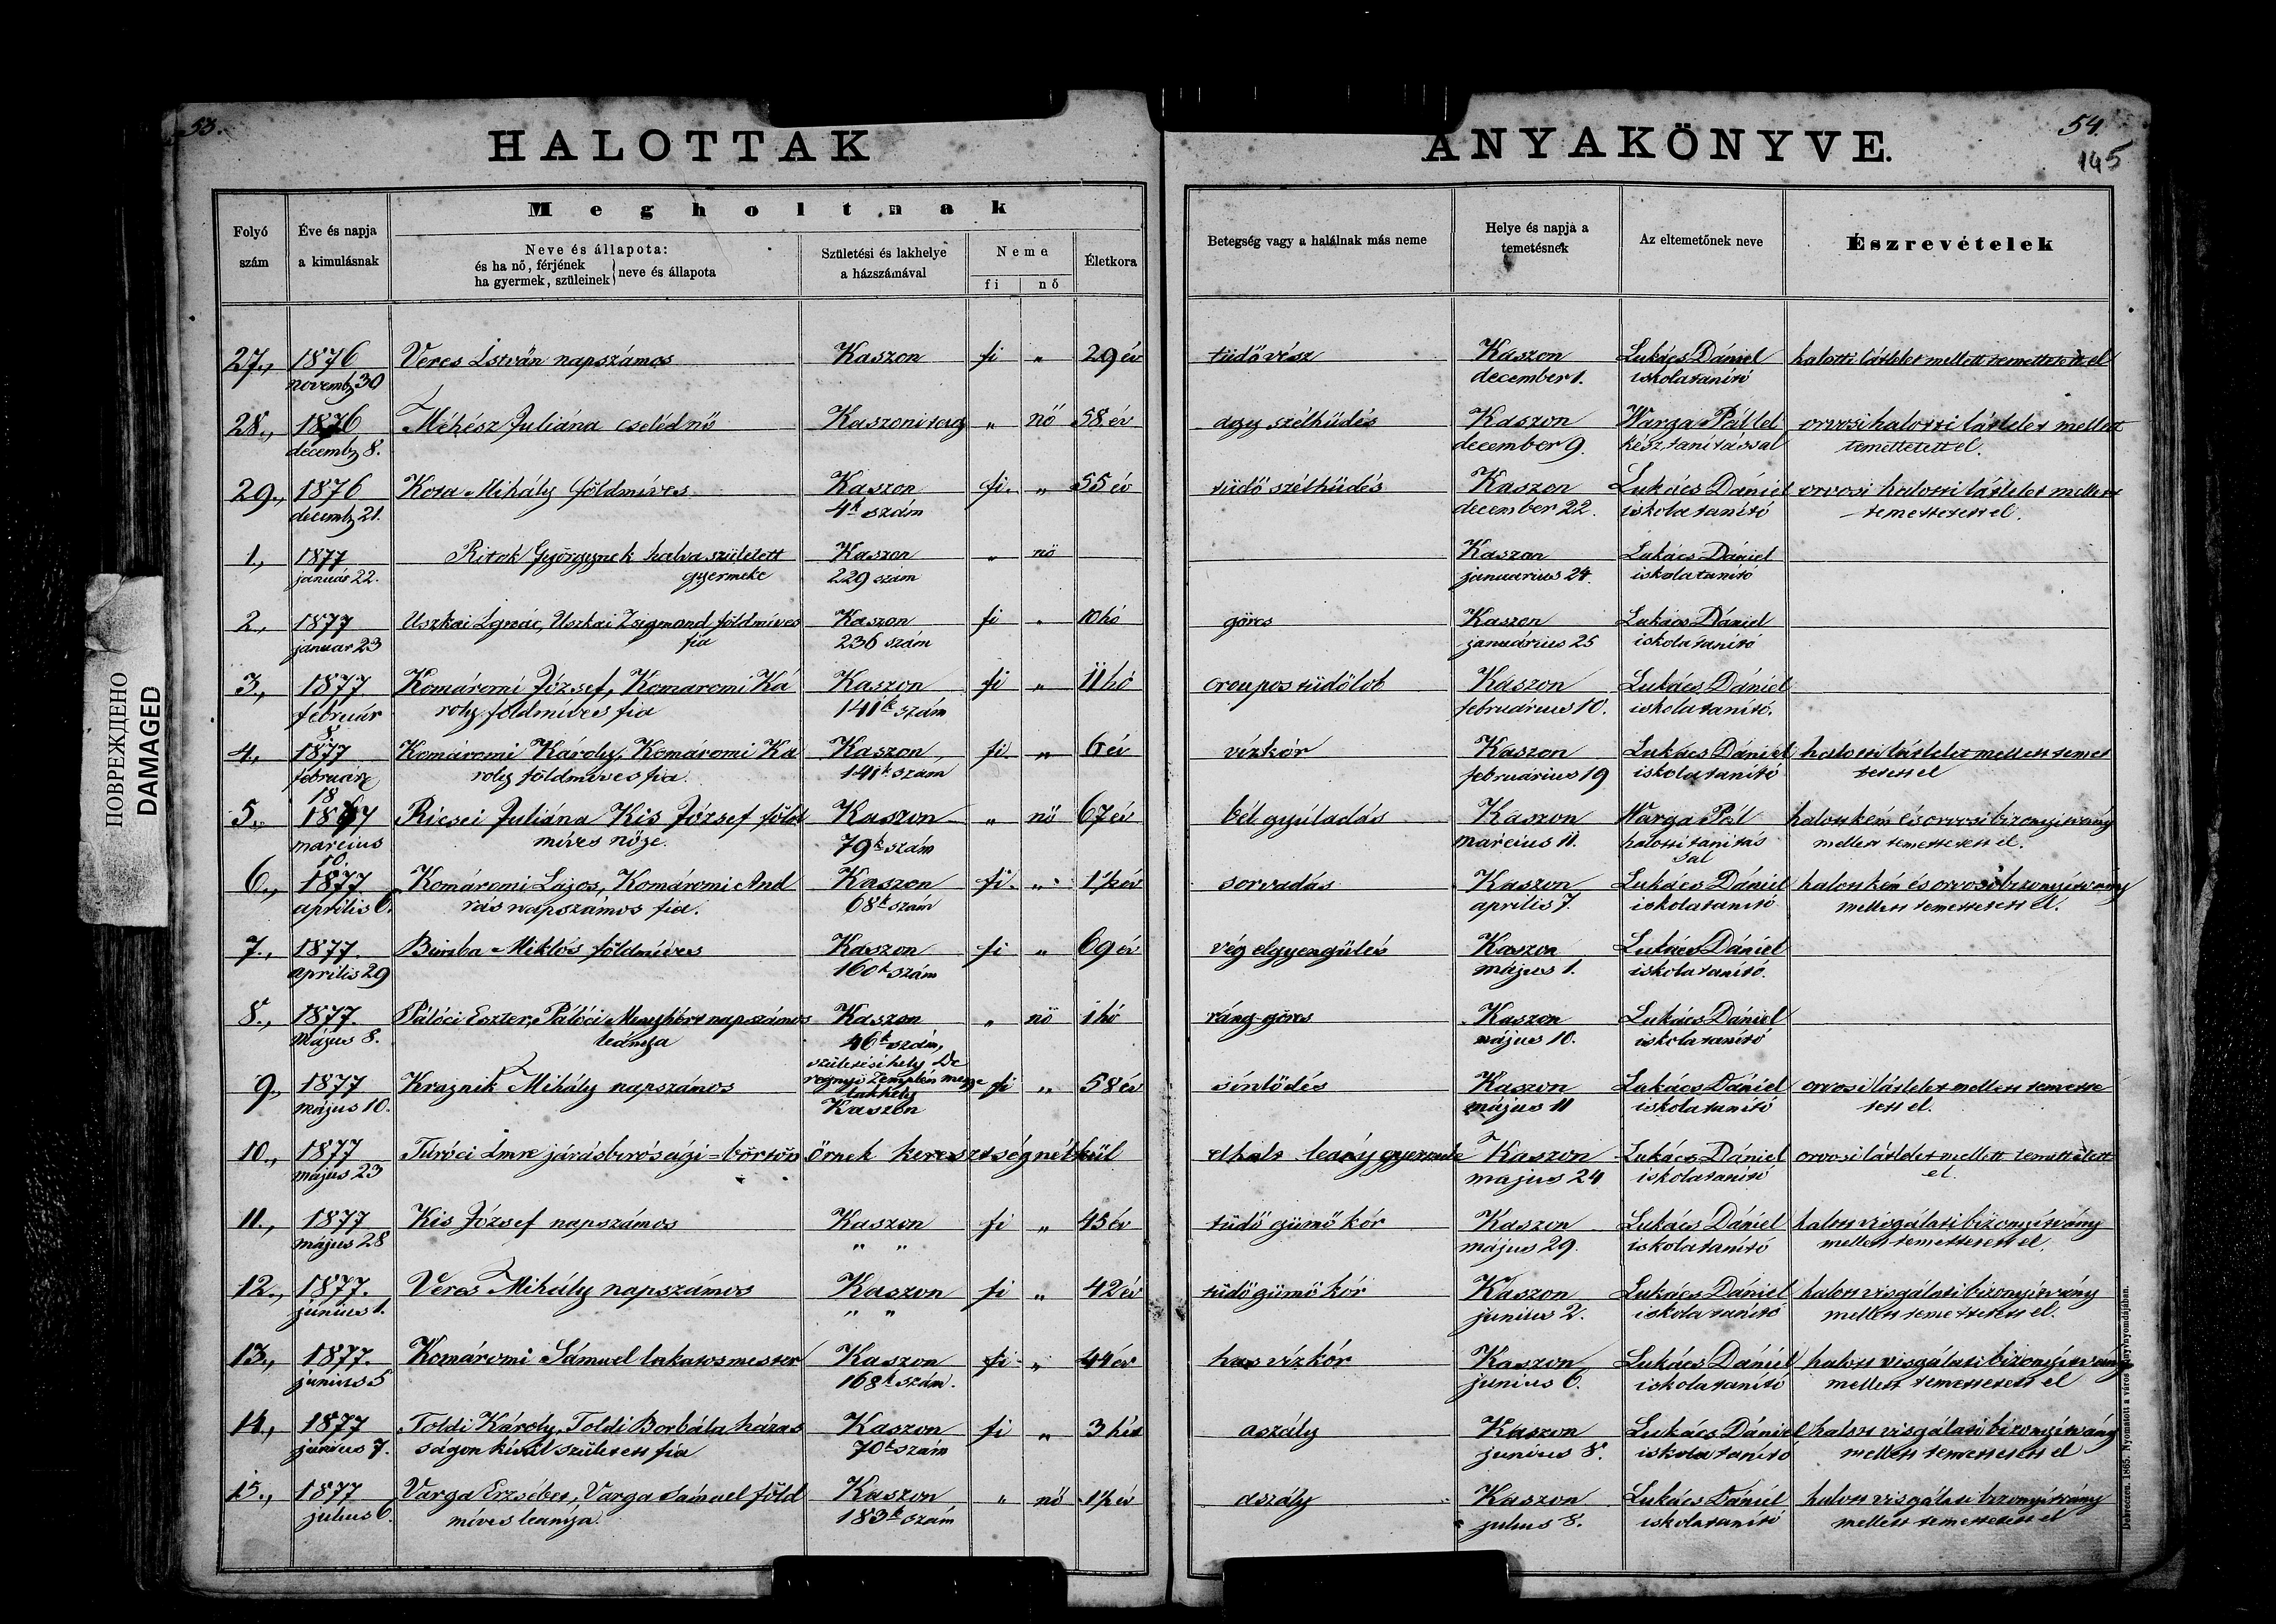 53.
54.
145
HALOTTAK ANYAKÖNYVE.
ПОВРЕЖДЕНО
DAMAGED
Folyó szám
Éve és napja a kimulásnak
Megholtnak
Neve és állapota:
és ha nő, férjének
ha gyermek, szüleinek
neve és állapota
Születési és lakhelye a házszámával
Neme
fi nő
Életkora
Betegség vagy a halálnak más neme
Helye és napja a temetésnek
Az eltemetőnek neve
Észrevételek
27., 1876 Veres István napszámos Kaszon fi „ 29 év tüdővész Kaszon Lukács Dániel halotti látlelet mellett temettetett el
novemb 30 december 1. iskolatanító
28., 1876 Méhész Juliána cselédnő Kaszoni tag „ nő 58 év agy szélhüdés Kaszon Warga Pál lel orvosi halotti látlelet mellett
decemb 8. december 9. kész tanítással temettetett el.
29., 1876 Kota Mihály földmíves Kaszon fi. „ 55 év tüdő szélhüdés Kaszon Lukács Dániel orvosi halotti látlelet mellett
decemb 21. 4k szám december 22. iskolatanító temettetett el.
1., 1877 Ritok Györgynek halva született Kaszon „ nő Kaszon Lukács Dániel
január 22. gyermeke 229 szám januarius 24. iskolatanító
2., 1877 Uszkai Ignác, Uszkai Zsigmond földmíves Kaszon fi „ 10 hó görcs Kaszon Lukács Dániel
január 23 fia 236 szám január­ius 25 iskolatanító
3., 1877 Komáromi József, Komaromi Ká Kaszon fi „ 11 hó croupos tüdőlob Kaszon Lukács Dániel
február roly földmíves fia 141k szám február­ius 10. iskolatanító.
8
4., 1877 Komáromi Károly, Komáromi Ká Kaszon fi „ 6 év vízkór Kaszon Lukács Dániel halotti látlelet mellett temet
február roly földmíves fia. 141k szám február­ius 19 iskolatanító tetett el
18
5., Ricsei Juliána Kis József föld Kaszon „ nő 67 év bél gyúladás Kaszon Warga Pál halottkém és orvosi bizonyítvány
marcius míves nője. 79k szám március 11. halotti tanitás mellett temettetett el.
10. sal
6., 1877 Komáromi Lajos, Komáromi And Kaszon fi. „ 1½ év sorvadás Kaszon Lukács Dániel halottkém és orvosi bizonyítvány
április 6. rás napszámos fia. 68k szám április 7. iskolatanító mellett temettetett el.
7., 1877. Bimba Miklós földmíves Kaszon fi „ 69 év vég elgyengülés Kaszon Lukács Dániel
április 29 160k szám május 1. iskolatanító.
8., 1877. Pálóci Eszter, Pálóci Menyhért napszámos Kaszon „ nő 1 hó ráng görcs Kaszon Lukács Dániel
Május 8. leánya 46k szám, május 10. iskolatanító
születési hely De
regnyő Zemplén megye
9., 1877 Kraznik Mihály napszámos lakhely fi „ 58 év sínlődés Kaszon Lukács Dániel orvosi látlelet mellett temette
május 10. Kaszon május 11 iskolatanító tett el.
10., 1877 Túróci Imre járásbirósági=börtön örnek keresztség nélkül elhalt leány gyermeke Kaszon Lukács Dániel orvosi látlelet mellett temettetett
május 23 május 24 iskolatanító el.
11., 1877 Kis József napszámos Kaszon fi „ 45 év tüdő gümő kór Kaszon Lukács Dániel halott visgálati bizonyítvány
május 28 „ „ május 29. iskolatanító mellett temettetett el.
12., 1877. Veres Mihály napszámos Kaszon fi „ 42 év tüdő gümő kór Kaszon Lukács Dániel halott visgálati bizonyítvány
június 1. „ „ junius 2. iskolatanító mellett temettetett el.
13., 1877. Komáromi Sámuel lakatosmester Kaszon fi „ 44 év has vízkór Kaszon Lukács Dániel halott visgálati bizonyítvány
június 5 168k szám. junius 6. iskolatanító mellett temettetett el
14., 1877 Toldi Károly, Toldi Borbála házas Kaszon fi „ 3 hét aszály Kaszon Lukács Dániel halott visgálati bizonyítvány
június 7. ságon kívül született fia 70k szám junius 8. iskolatanító mellett temettetett el
15., 1877 Varga Erzsébet, Varga Sámuel föld Kaszon „ nő 1½ év aszály Kaszon Lukács Dániel halott visgálati bizonyítvány
július 6. míves leánya. 183k szám julius 8. iskolatanító mellett temettetett el
Debreczen. 1865. Nyomatott a város könyvnyomdájában.